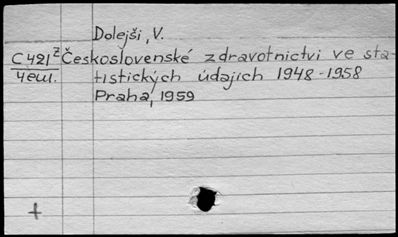 Dolejši, V.
C421 z Československé zdravotnictvi ve sta-
4eul. tistických údajích 1948-1958
Praha, 1959
+